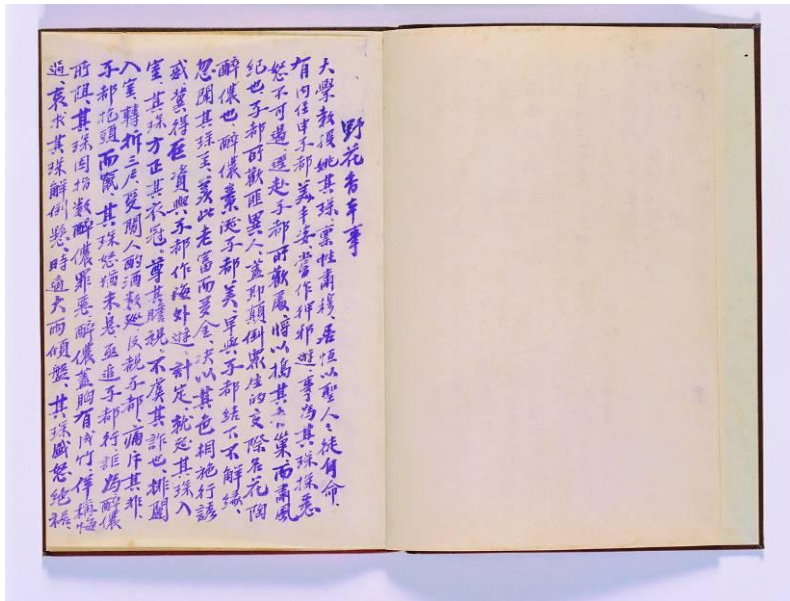 野花香本事
大學教授姚其琛、稟性肅穆、居恒以聖人之徒自命、
有內侄申子都、美丰姿、嘗作狎邪遊、事為其琛探悉、
怒不可遏、逕赴子都所歡處、將以搗其香巢、而肅風
紀也、子都所歡匪異人、蓋即顛倒眾生的交際名花陶
醉儂也、醉儂美、子都美、早與子都結下不解緣、
忽聞其琛至、羨此老富而多金、決以其色相施行誘
惑、冀得巨資與子都作海外遊、計定、就延其琛入
室、其琛方正其衣冠、尊其瞻視、不虞其詐也、排闥
入室、轉折三尺、雙關人酌酒數巡、反親子都、痛斥其非、
子都抱頭而竄、其琛怒猶未息、亟追子都行、詎為醉儂
所阻、其琛因指數醉儂罪惡、醉儂蓋胸有成竹、佯稱悔
過、哀求其琛解倒懸、時適大雨傾盤、其琛盛怒絕裾、